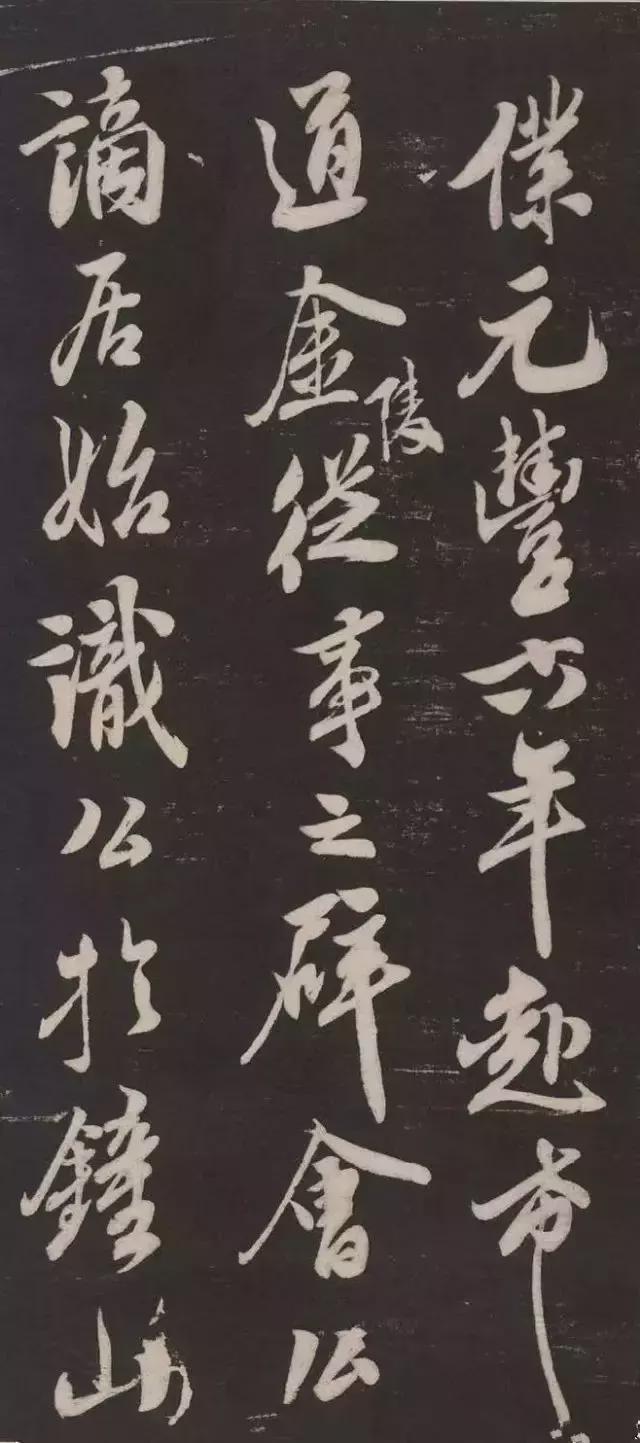 僕元豐六年赴希
道金陵從事之辟會公
謫居始識公於鍾山